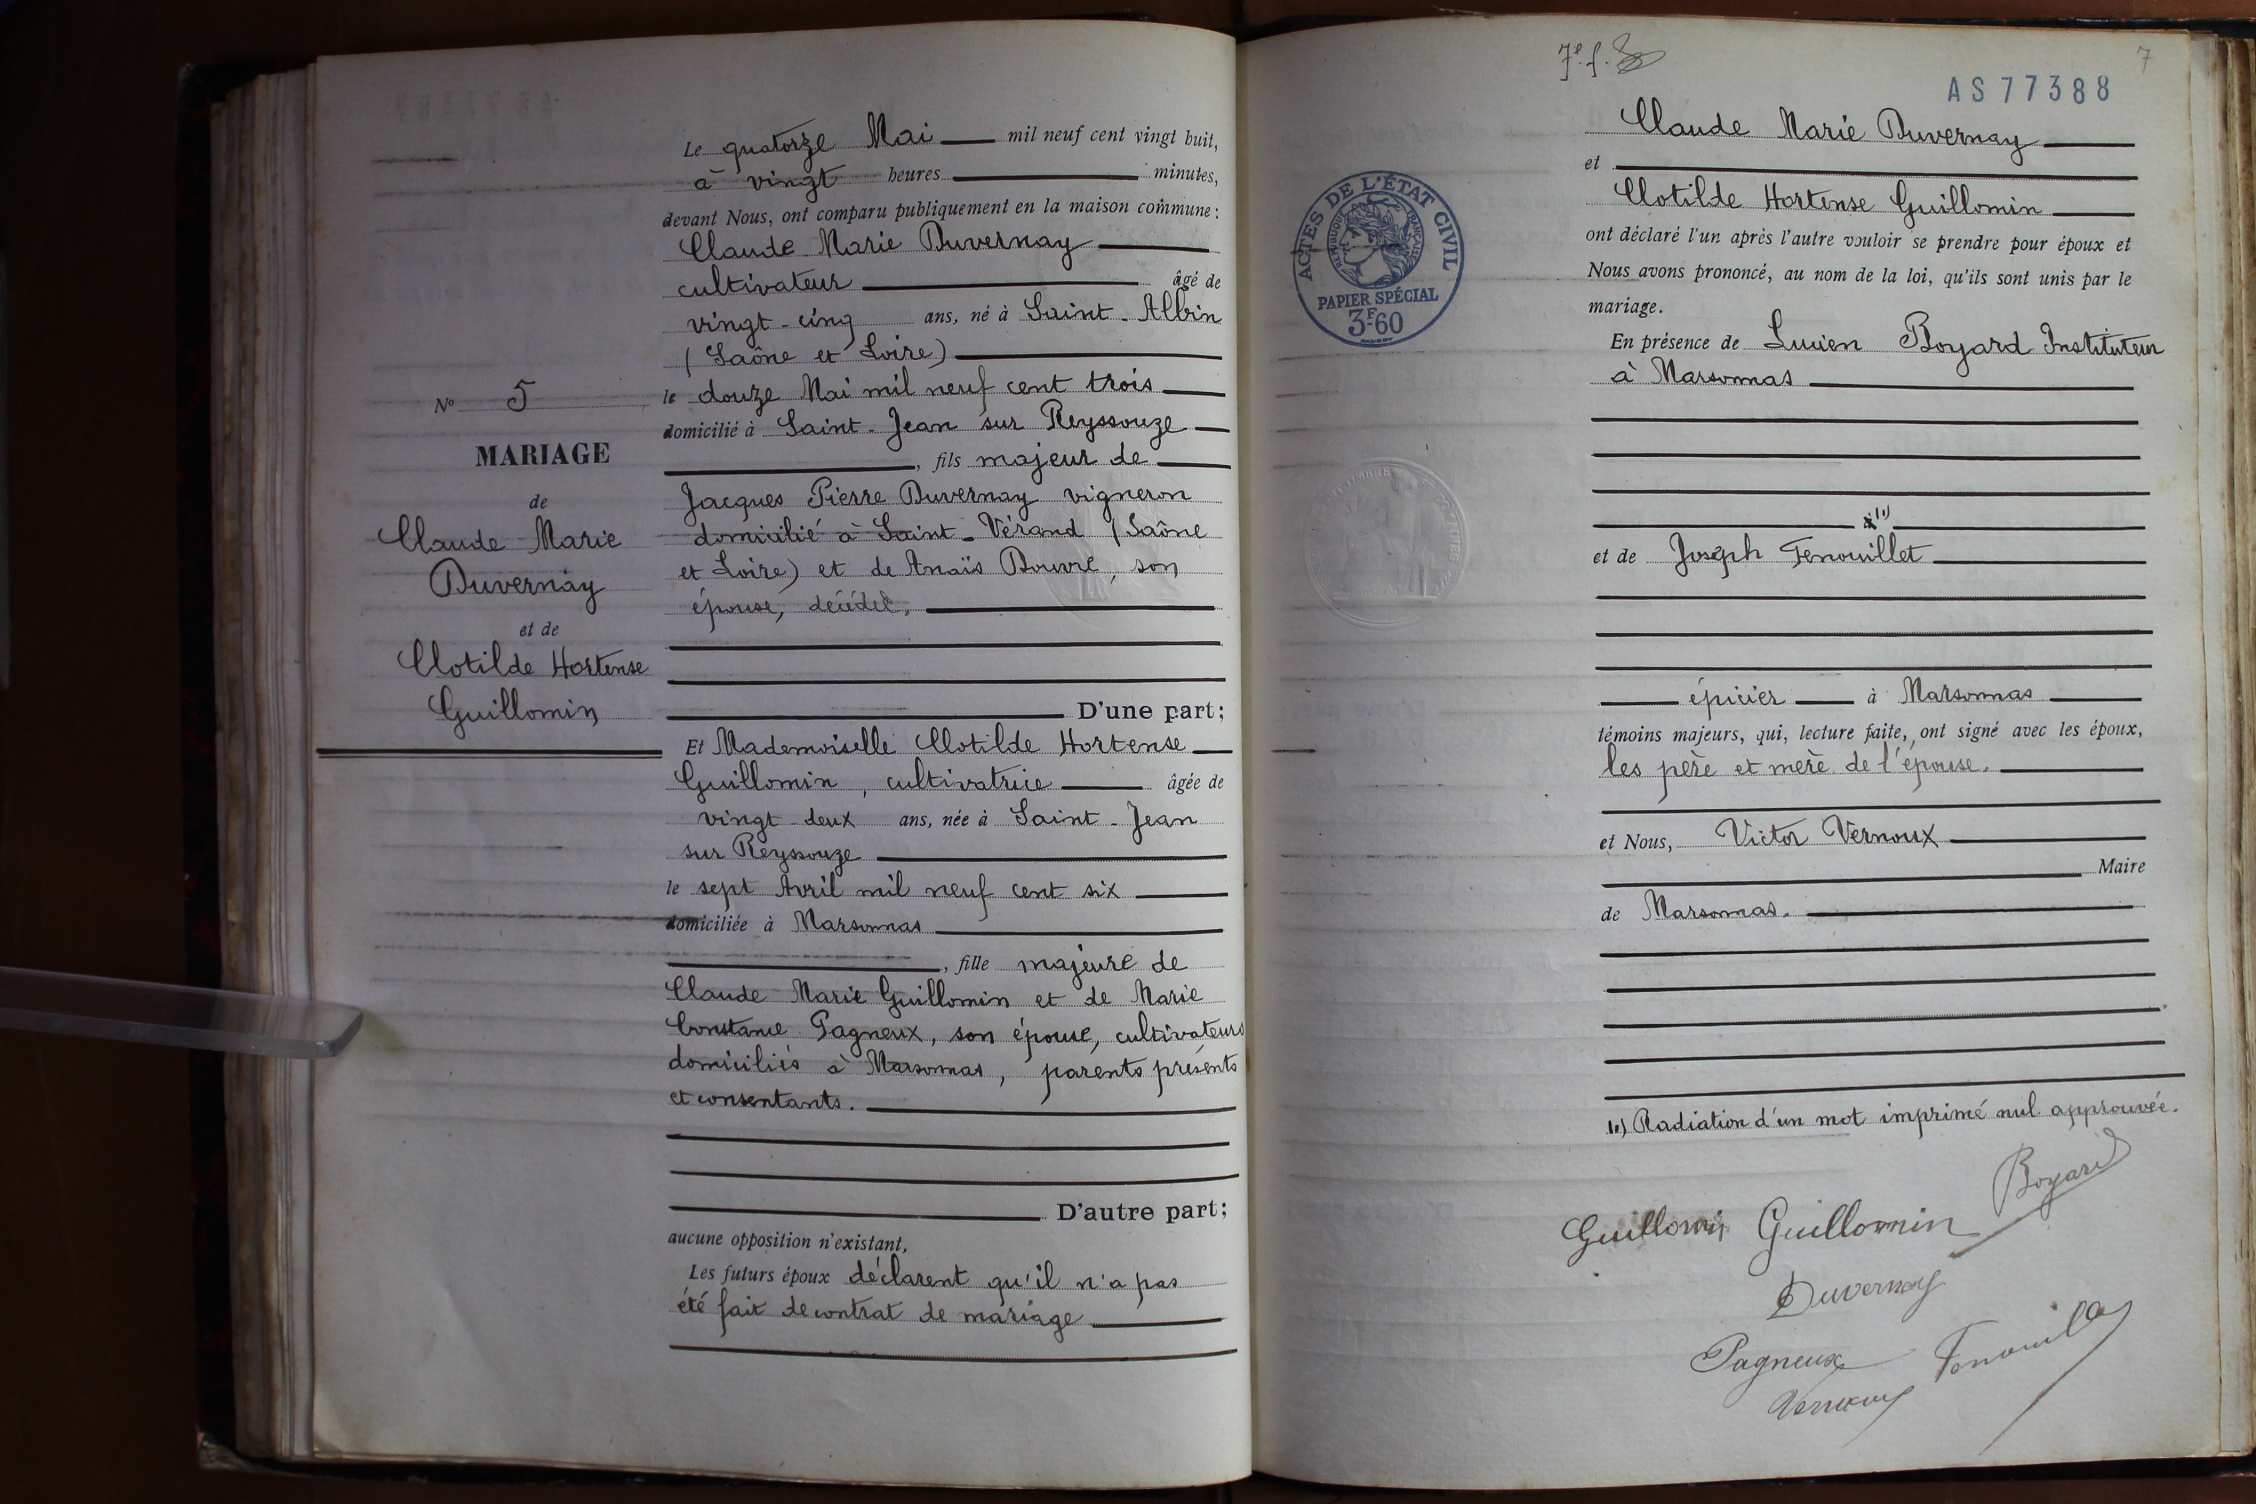 Le quatorze Mai mil neuf cent vingt huit,
à vingt heures minutes,
devant Nous, ont comparu publiquement en la maison commune :
Claude Marie Duvernay
cultivateur âgé de
vingt-cinq ans, né à Saint-Albin
(Saône et Loire)
le douze Mai mil neuf cent trois
domicilié à Saint-Jean sur Reyssouze
, fils majeur de
Jacques Pierre Duvernay vigneron
domicilié à Saint-Vérand (Saône
et Loire) et de Anaïs Bouvre, son
épouse, décédée,
D'une part ;
N° 5
MARIAGE
de
Claude Marie
Duvernay
et de
Clotilde Hortense
Guillomin
Et Mademoiselle Clotilde Hortense
Guillomin, cultivatrice âgée de
vingt-deux ans, née à Saint-Jean
sur Reyssouze
le sept Avril mil neuf cent six
domiciliée à Marsonnas
, fille majeure de
Claude Marie Guillomin et de Marie
Constance Pagneux, son épouse, cultivateurs
domiciliés à Marsonnas, parents présents
et consentants.
D'autre part ;
aucune opposition n'existant,
Les futurs époux déclarent qu'il n'a pas
été fait de contrat de mariage
7e. f.
7
AS 77388
ACTES DE L'ÉTAT CIVIL
RÉPUBLIQUE FRANÇAISE
PAPIER SPÉCIAL
3F60
Claude Marie Duvernay
et
Clotilde Hortense Guillomin
ont déclaré l'un après l'autre vouloir se prendre pour époux et
Nous avons prononcé, au nom de la loi, qu'ils sont unis par le
mariage.
En présence de Lucien Boyard Instituteur
à Marsonnas
(1)
et de Joseph Fenouillet
épicier à Marsonnas
témoins majeurs, qui, lecture faite, ont signé avec les époux,
les père et mère de l'épouse.
et Nous, Victor Vernoux
Maire
de Marsonnas.
(1) Radiation d'un mot imprimé nul approuvée.
Boyard
Guillomin Guillomin
Duvernay
Pagneux Fenouillet
Vernoux